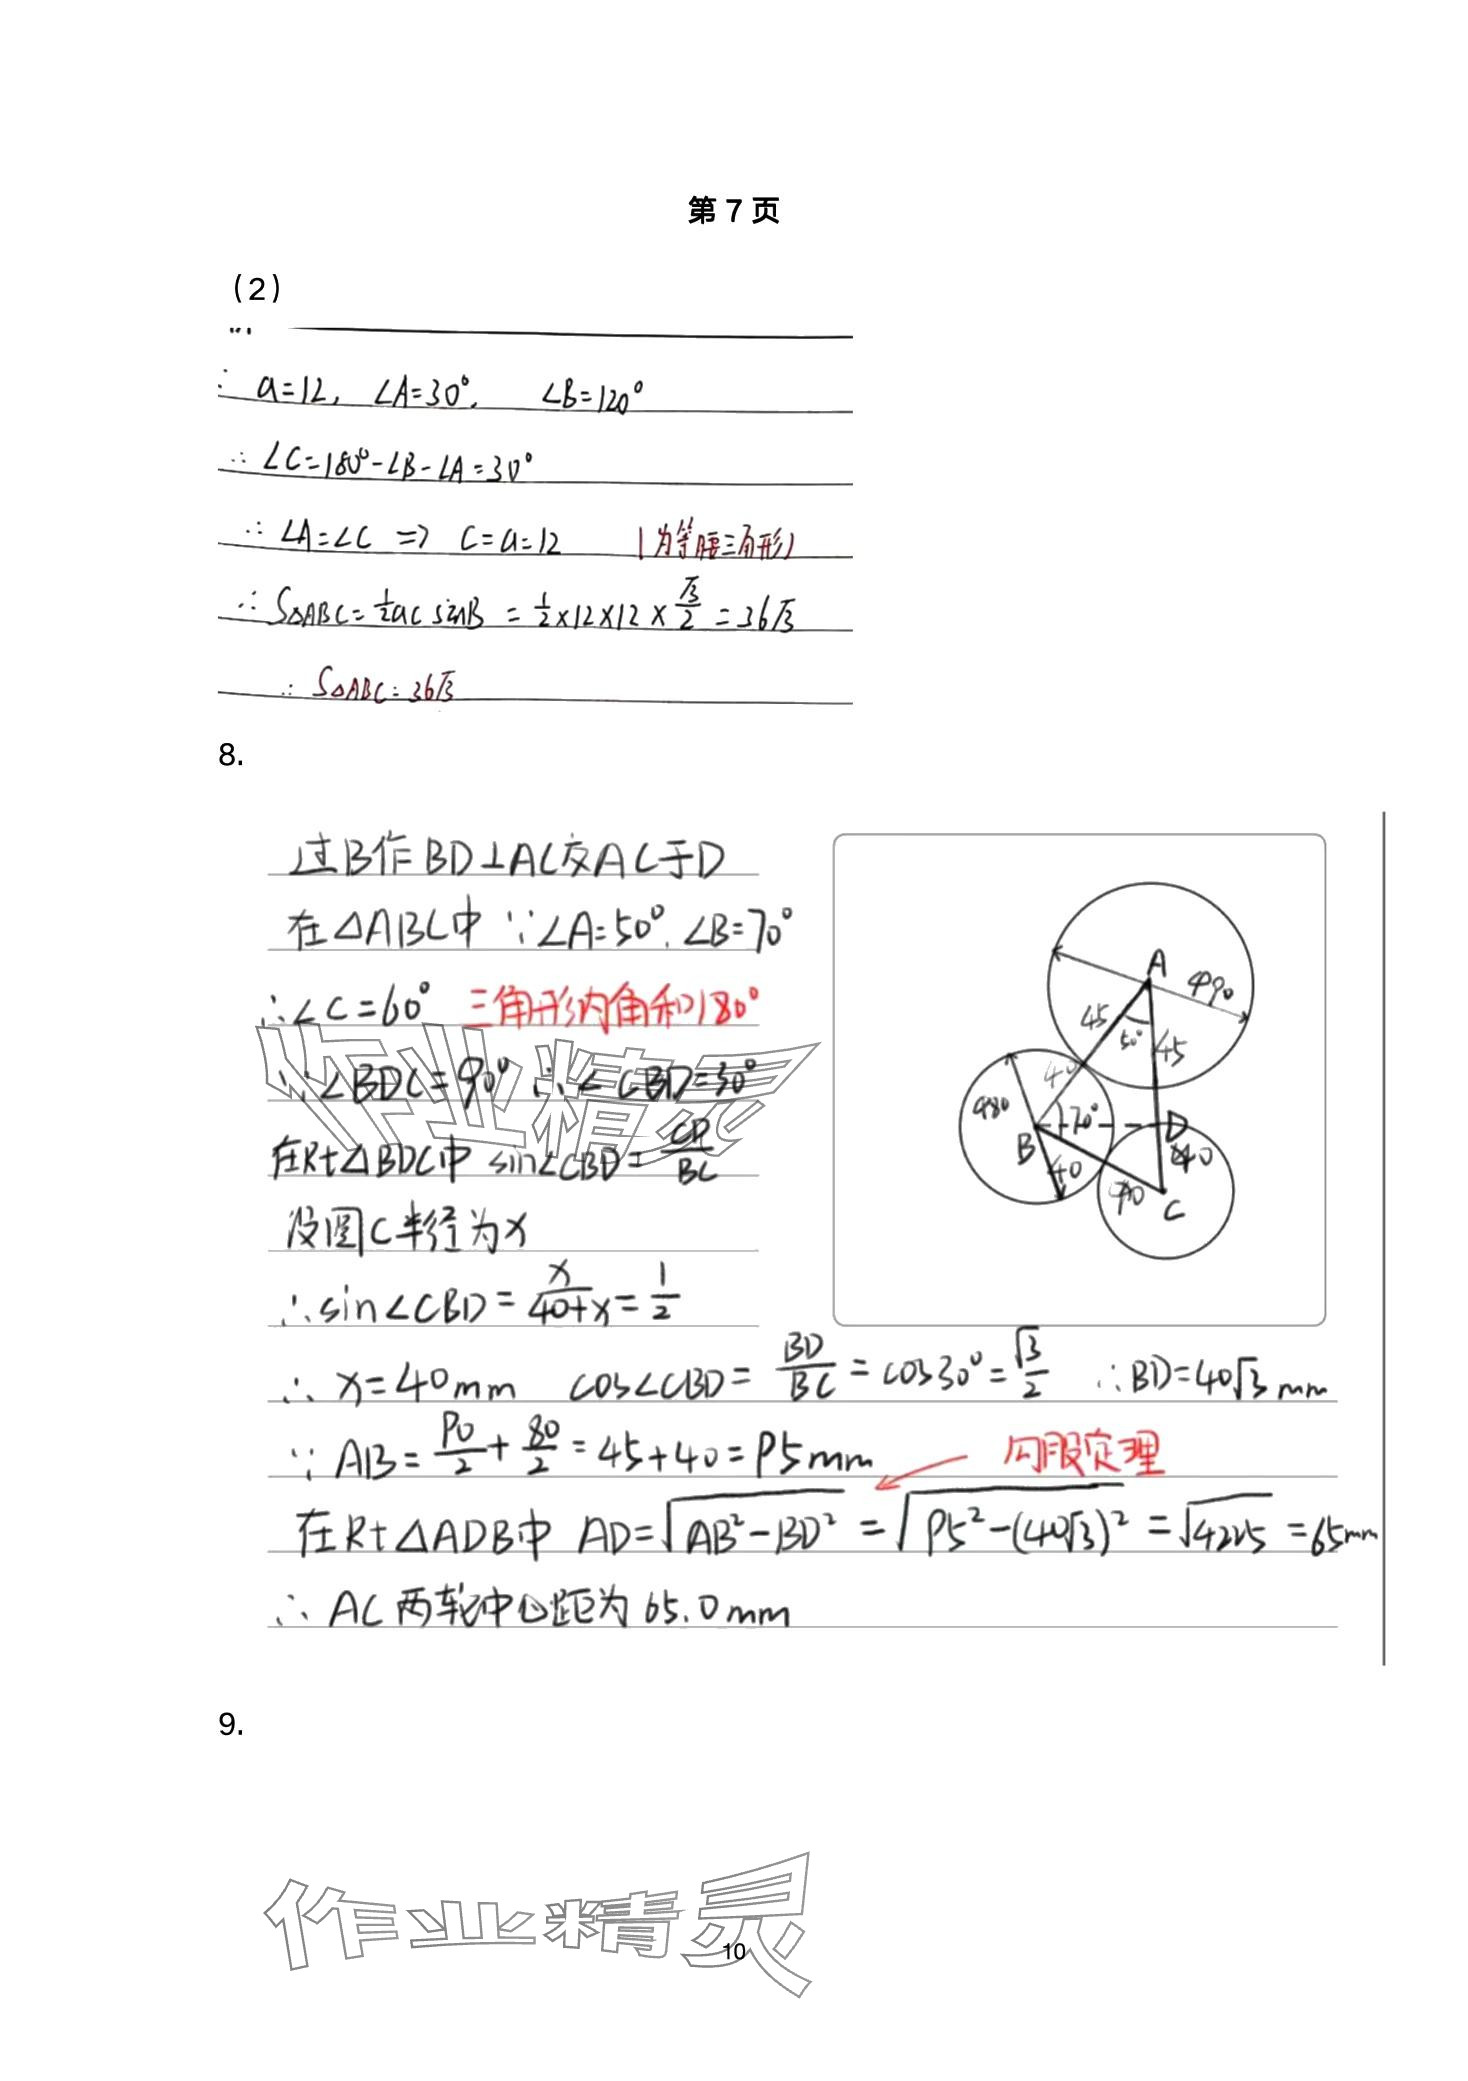 第 7 页
(2)
∵ a=12, ∠A=30°, ∠B=120°
∴ ∠C=180°-∠B-∠A=30°
∴ ∠A=∠C ⇒ c=a=12 (为等腰三角形)
∴ S△ABC=½ac sinB = ½×12×12×√3/2 = 36√3
∴ S△ABC=36√3
8.
过B作BD⊥AC交AC于D
在△ABC中 ∵∠A=50°, ∠B=70°
∴∠C=60° 三角形内角和180°
∵∠BDC=90° ∴∠CBD=30°
在Rt△BDC中 sin∠CBD=CD/BC
设圆C半径为x
∴sin∠CBD=x/(40+x)=1/2
∴ x=40mm cos∠CBD=BD/BC=cos30°=√3/2 ∴BD=40√3mm
∵ AB=90/2+80/2=45+40=85mm
勾股定理
在Rt△ADB中 AD=√(AB²-BD²)=√(85²-(40√3)²)=√4225=65mm
∴ AC两轮中心距为65.0mm
A
φ90
45
50°
45
40
φ80
70°
D
B
40
40
40
C
9.
作业精灵
作业精灵
10